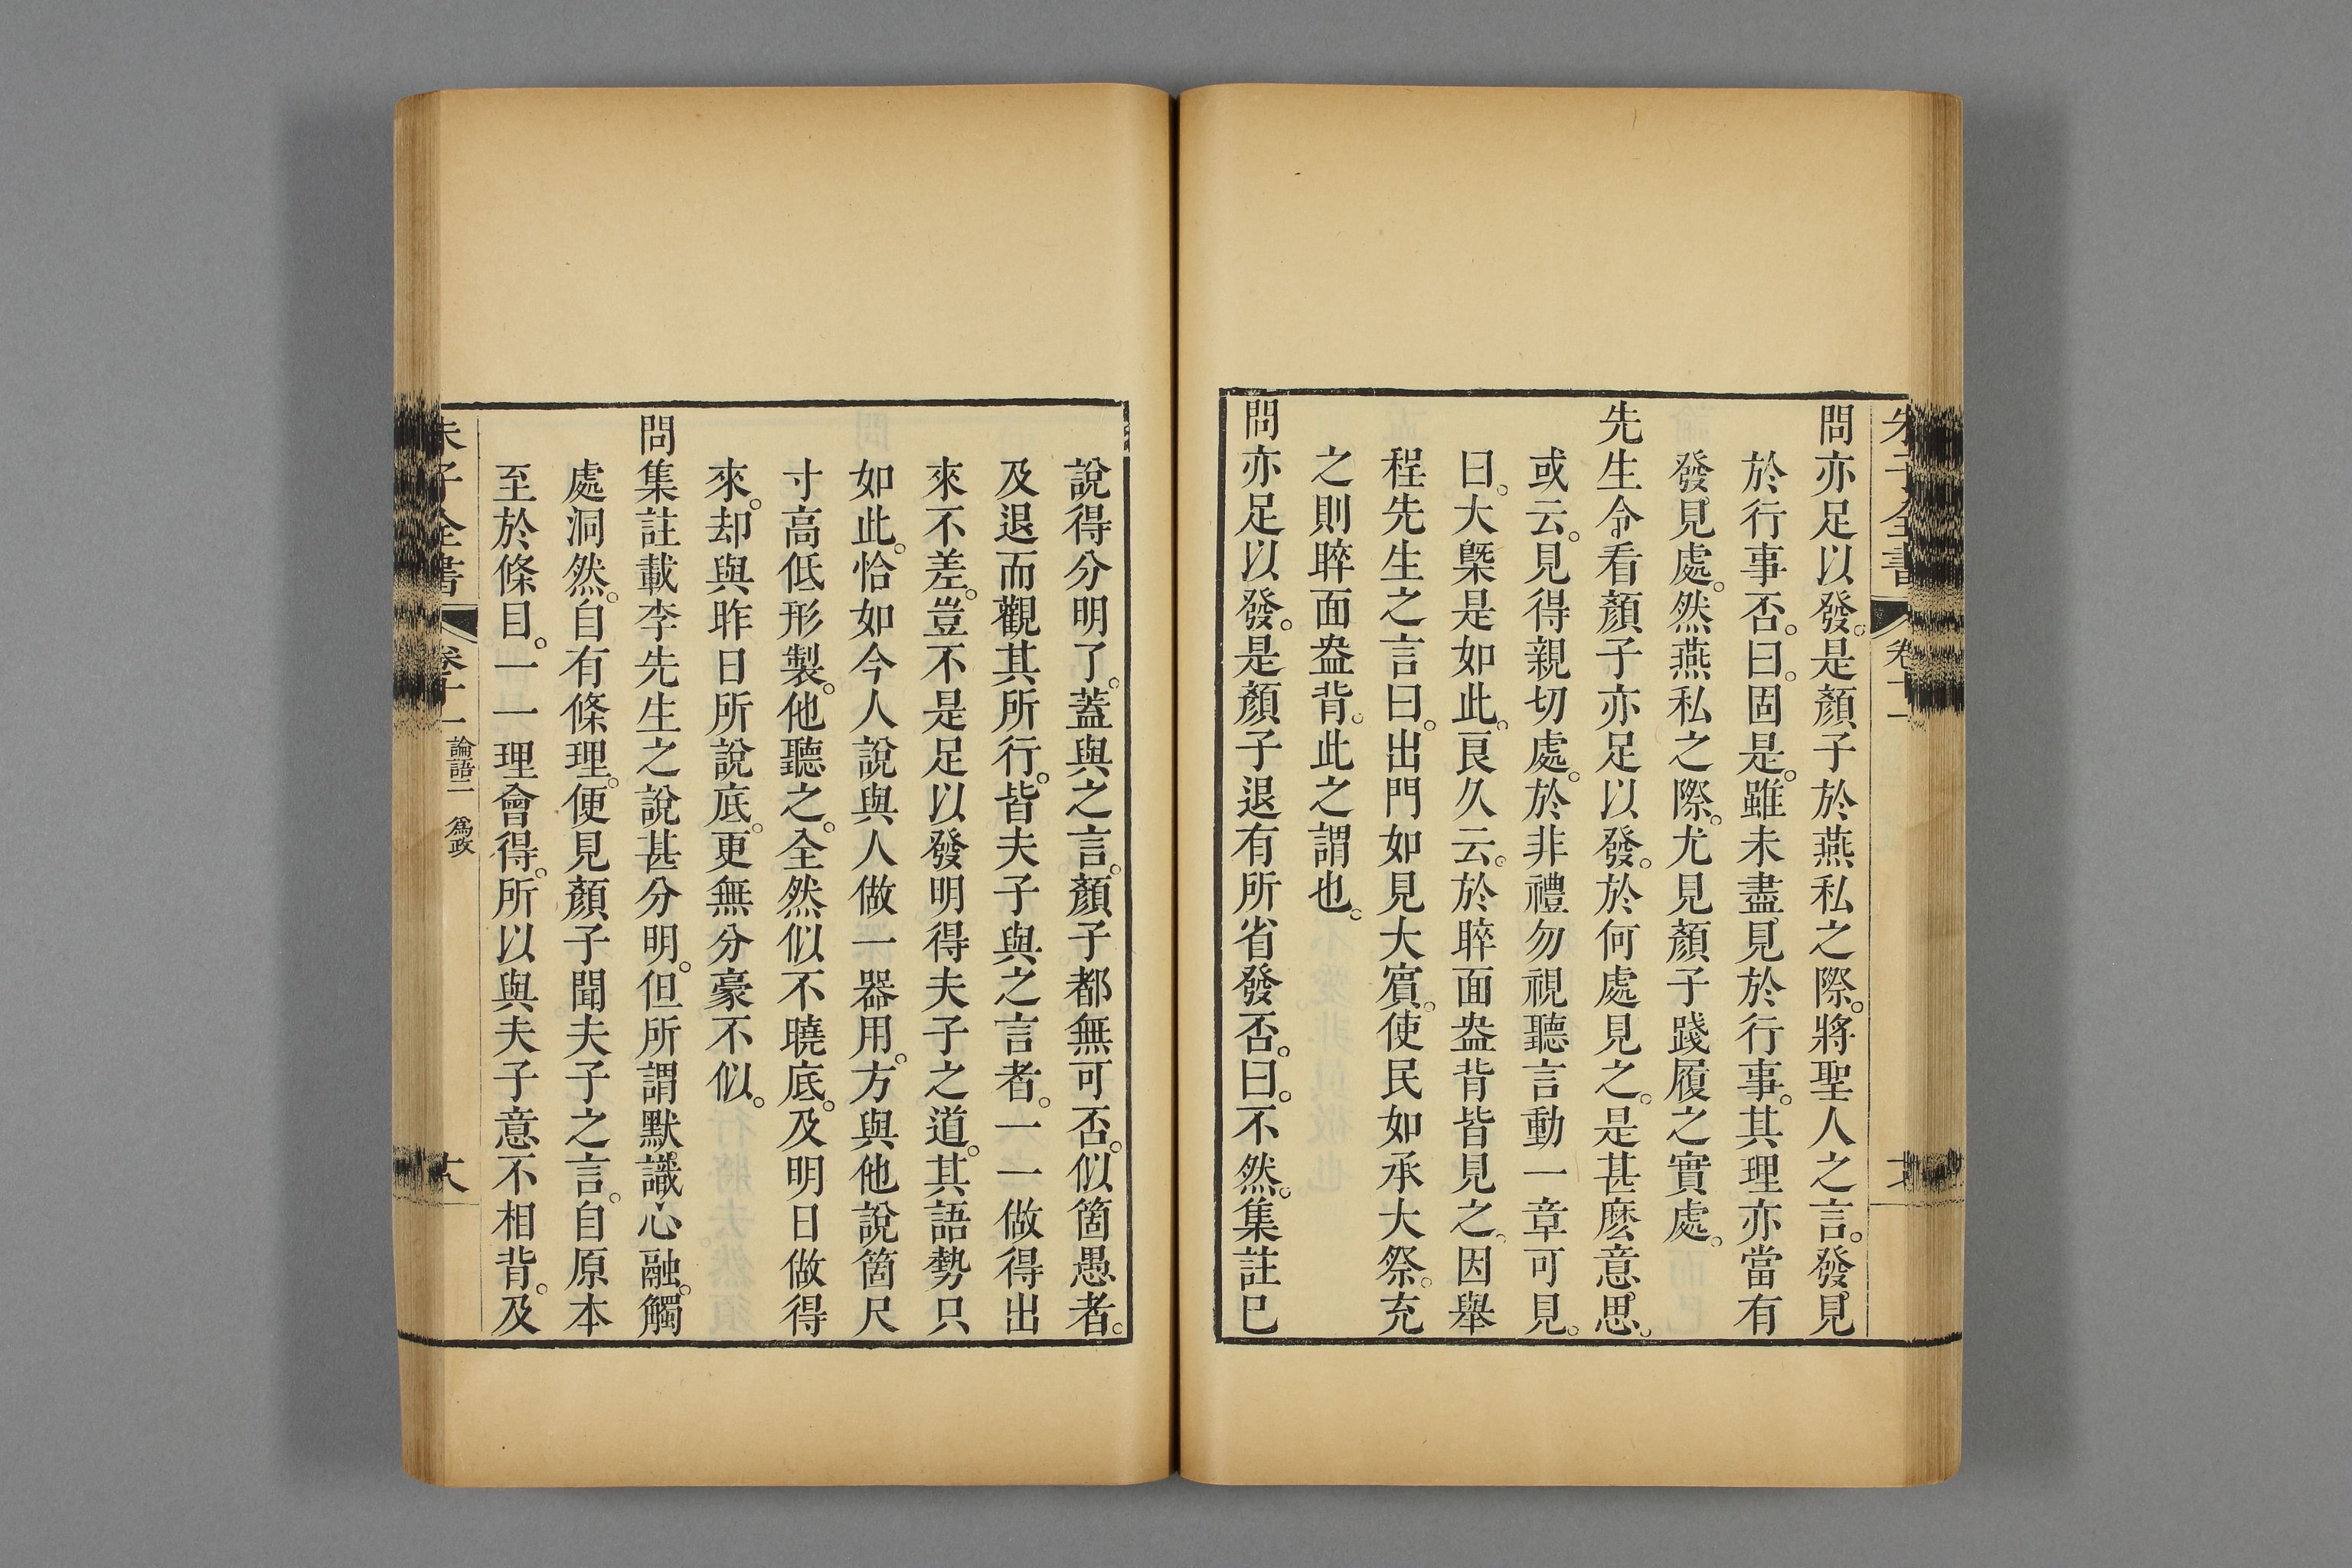 朱子全書 卷十一
問亦足以發。是顏子於燕私之際。將聖人之言。發見
於行事否。曰。固是。雖未盡見於行事。其理亦當有
發見處。然燕私之際。尤見顏子踐履之實處。
先生令看顏子亦足以發。於何處見之。是甚麽意思。
或云。見得親切處。於非禮勿視聽言動一章可見。
曰。大槩是如此。良久云。於睟面盎背皆見之。因舉
程先生之言曰。出門如見大賓。使民如承大祭。充
之則睟面盎背。此之謂也。
問亦足以發。是顏子退有所省發否。曰。不然。集註已
說得分明了。蓋與之言。顏子都無可否。似箇愚者。
及退而觀其所行。皆夫子與之言者。一一做得出
來不差。豈不是足以發明得夫子之道。其語勢只
如此。恰如今人說與人做一器用。方與他說箇尺
寸高低形製。他聽之。全然似不曉底。及明日做得
來。却與昨日所說底。更無分豪不似。
問集註載李先生之說甚分明。但所謂默識心融。觸
處洞然。自有條理。便見顏子聞夫子之言。自原本
至於條目。一一理會得。所以與夫子意不相背。及
朱子全書 卷十一 論語二 爲政